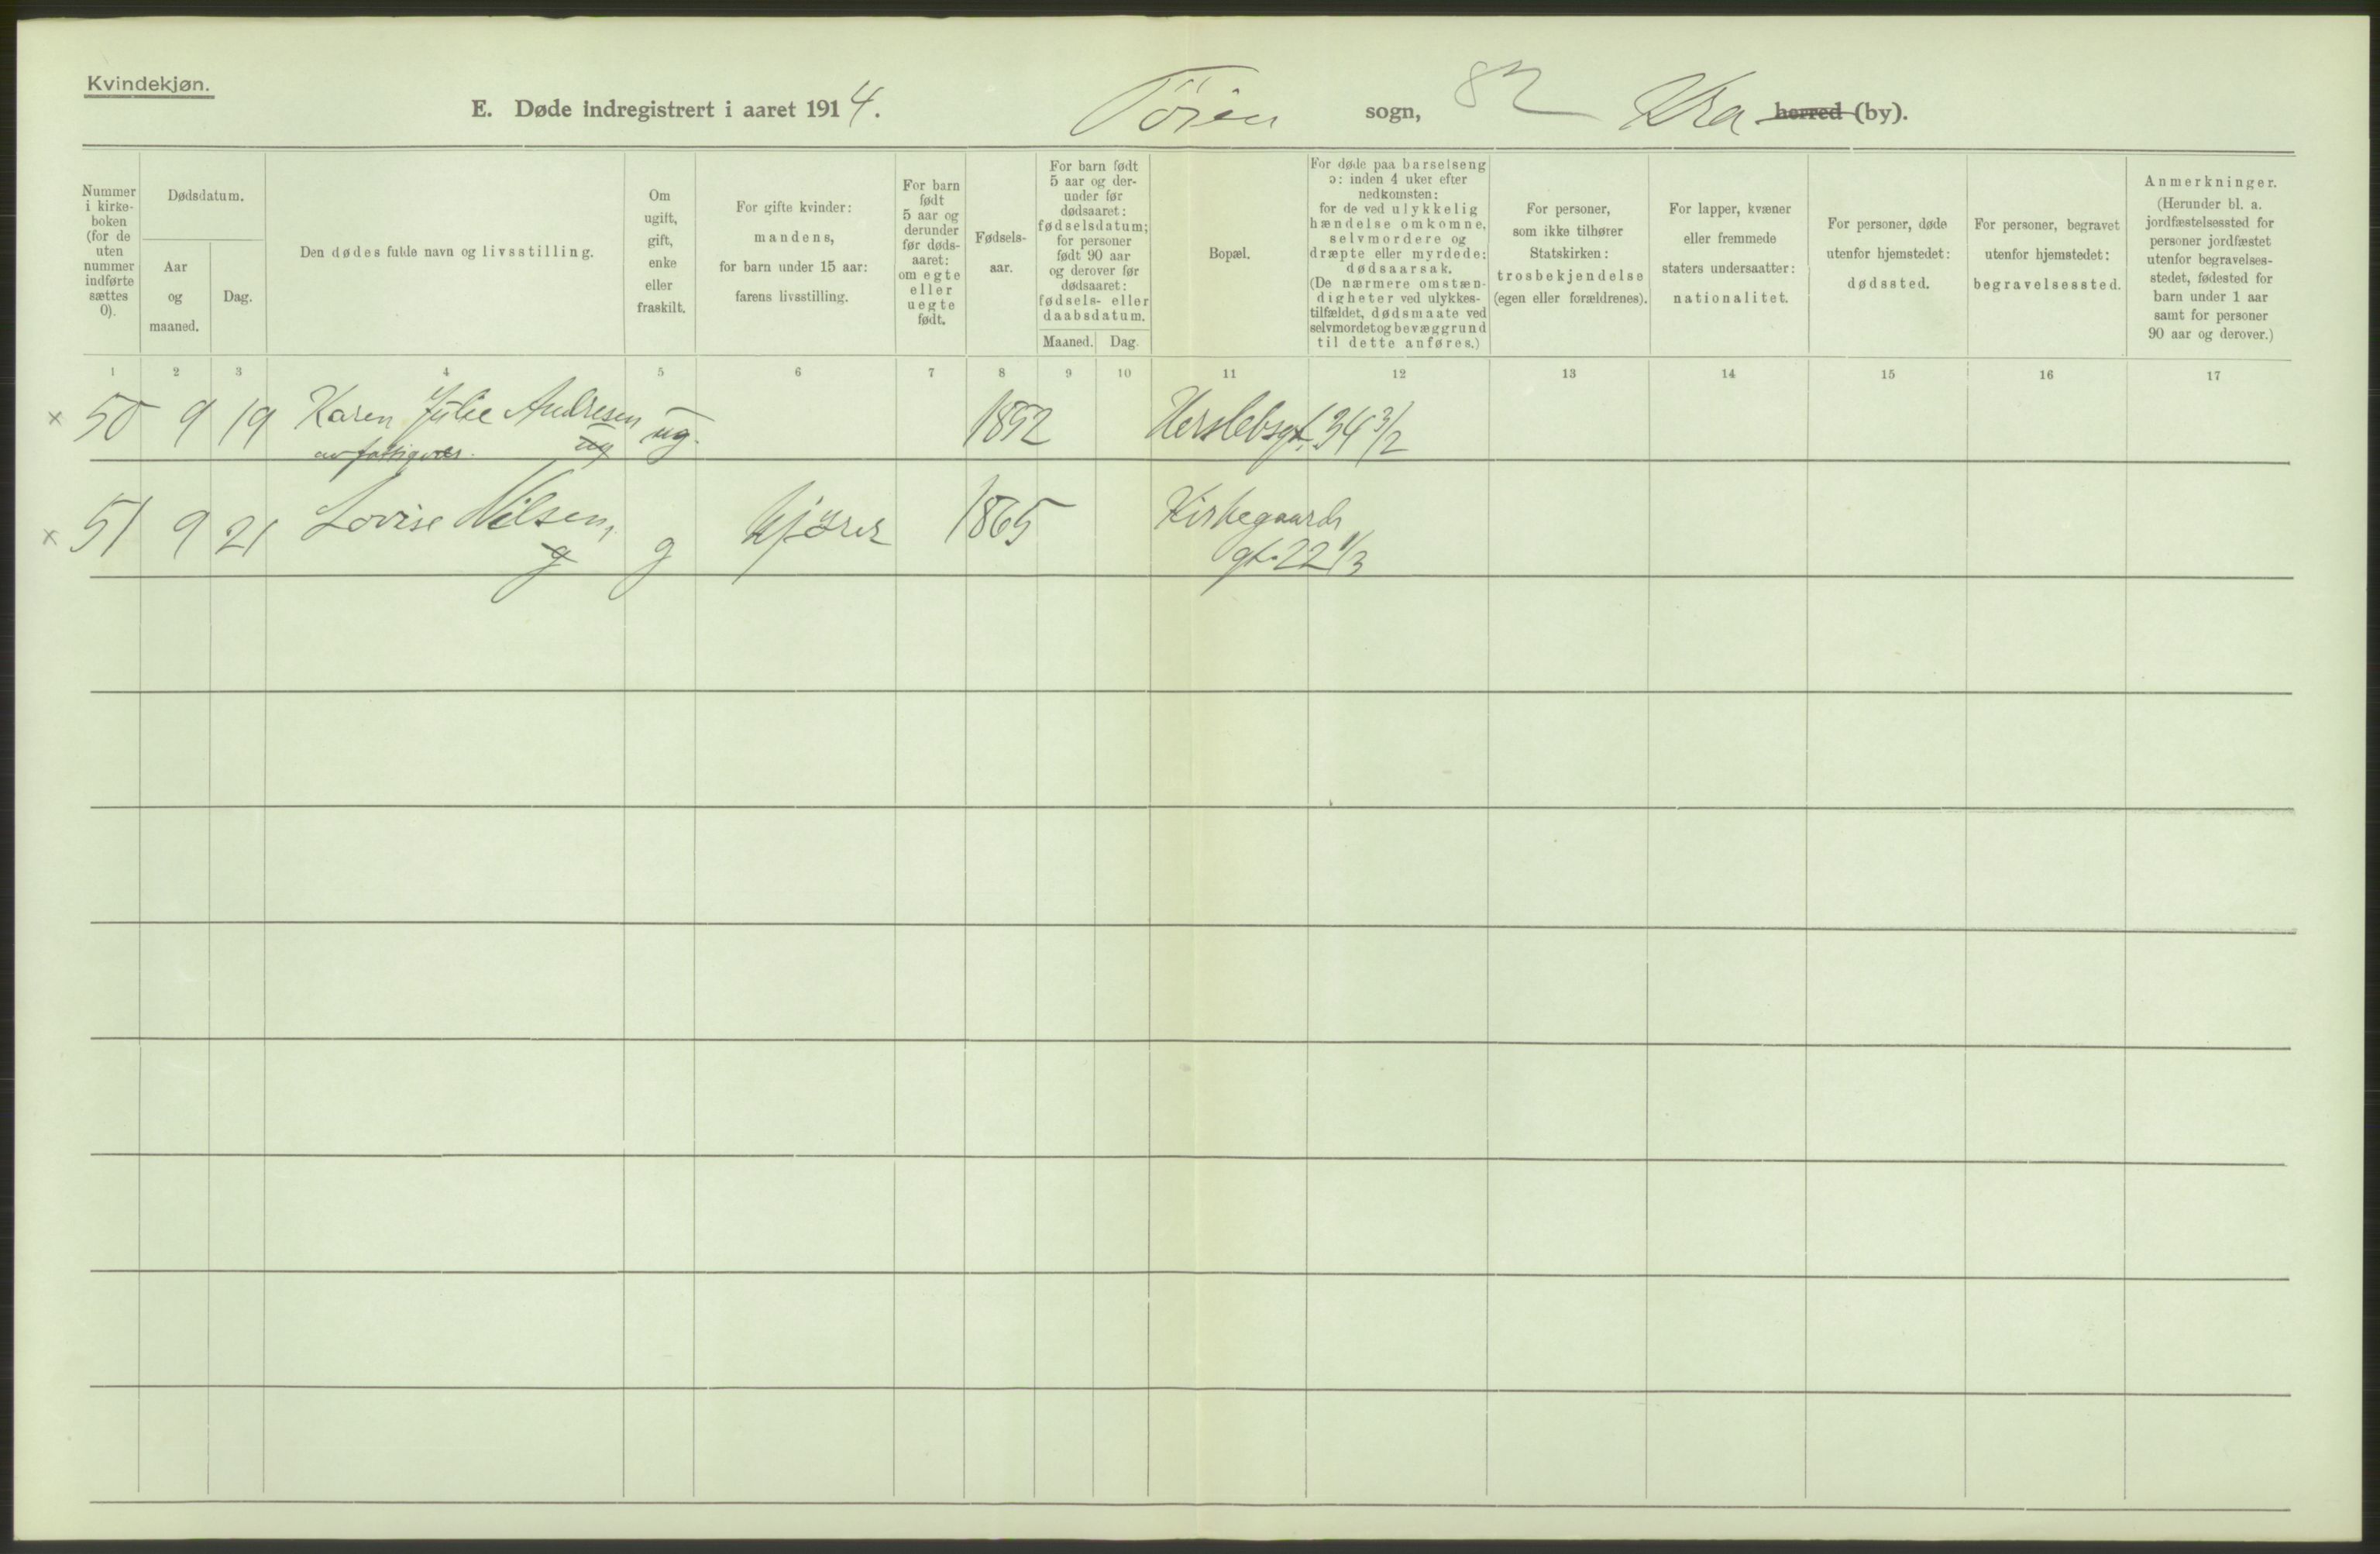 Kvindekjøn.
E. Døde indregistrert i aaret 1914. Tøien sogn, 82 Kra herred (by).
Nummer i kirke-boken (for de uten nummer indførte sættes 0).
Dødsdatum.
Aar og maaned.
Dag.
Den dødes fulde navn og livsstilling.
Om ugift, gift, enke eller fraskilt.
For gifte kvinder: mandens, for barn under 15 aar: farens livsstilling.
For barn født 5 aar og derunder før døds-aaret: om egte eller uegte født.
Fødsels-aar.
For barn født 5 aar og der-under før dødsaaret: fødselsdatum; for personer født 90 aar og derover før dødsaaret: fødsels- eller daabsdatum.
Maaned. Dag.
Bopæl.
For døde paa barselseng ɔ: inden 4 uker efter nedkomsten: for de ved ulykkelig hændelse omkomne, selvmordere og dræpte eller myrdede: dødsaarsak. (De nærmere omstæn-digheter ved ulykkes-tilfældet, dødsmaate ved selvmordet og bevæggrund til dette anføres.)
For personer, som ikke tilhører Statskirken: trosbekjendelse (egen eller forældrenes).
For lapper, kvæner eller fremmede staters undersaatter: nationalitet.
For personer, døde utenfor hjemstedet: dødssted.
For personer, begravet utenfor hjemstedet: begravelsessted.
Anmerkninger. (Herunder bl. a. jordfæstelsessted for personer jordfæstet utenfor begravelses-stedet, fødested for barn under 1 aar samt for personer 90 aar og derover.)
1 2 3 4 5 6 7 8 9 10 11 12 13 14 15 16 17
x 50 9 19 Karen Julie Andresen ug. 1852 Herslebsgt. 34 3/2
av fattigvæs. ug
x 51 9 21 Lovise Nilsen, g kjører 1865 Kirkegaards
g gt. 22 1/3